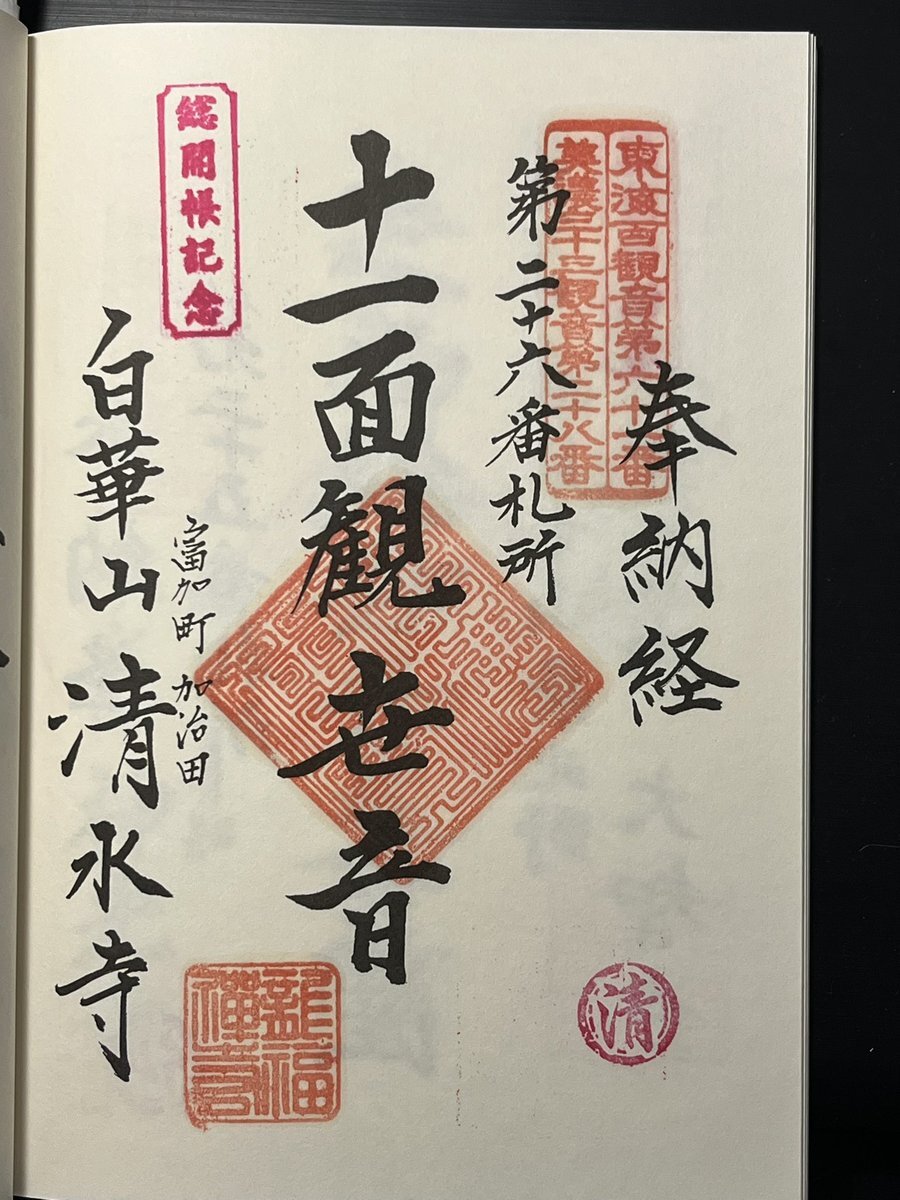 東海百観音第六十一番
美濃三十三観音第二十八番
奉納経
第二十六番札所
十一面観世音
総開帳記念
富加町 加治田
白華山 清水寺
龍福
禪寺
清